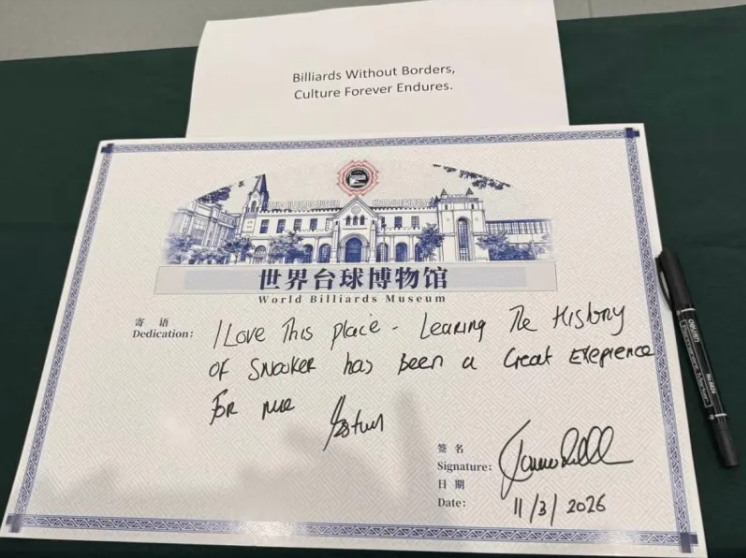 Billiards Without Borders,
Culture Forever Endures.
世界台球博物馆
World Billiards Museum
寄 语
Dedication:
I Love This place - Learing The History
OF Snooker has Been a Great Exeprence
For me
签 名
Signature:
日 期
Date:
11/3/2026